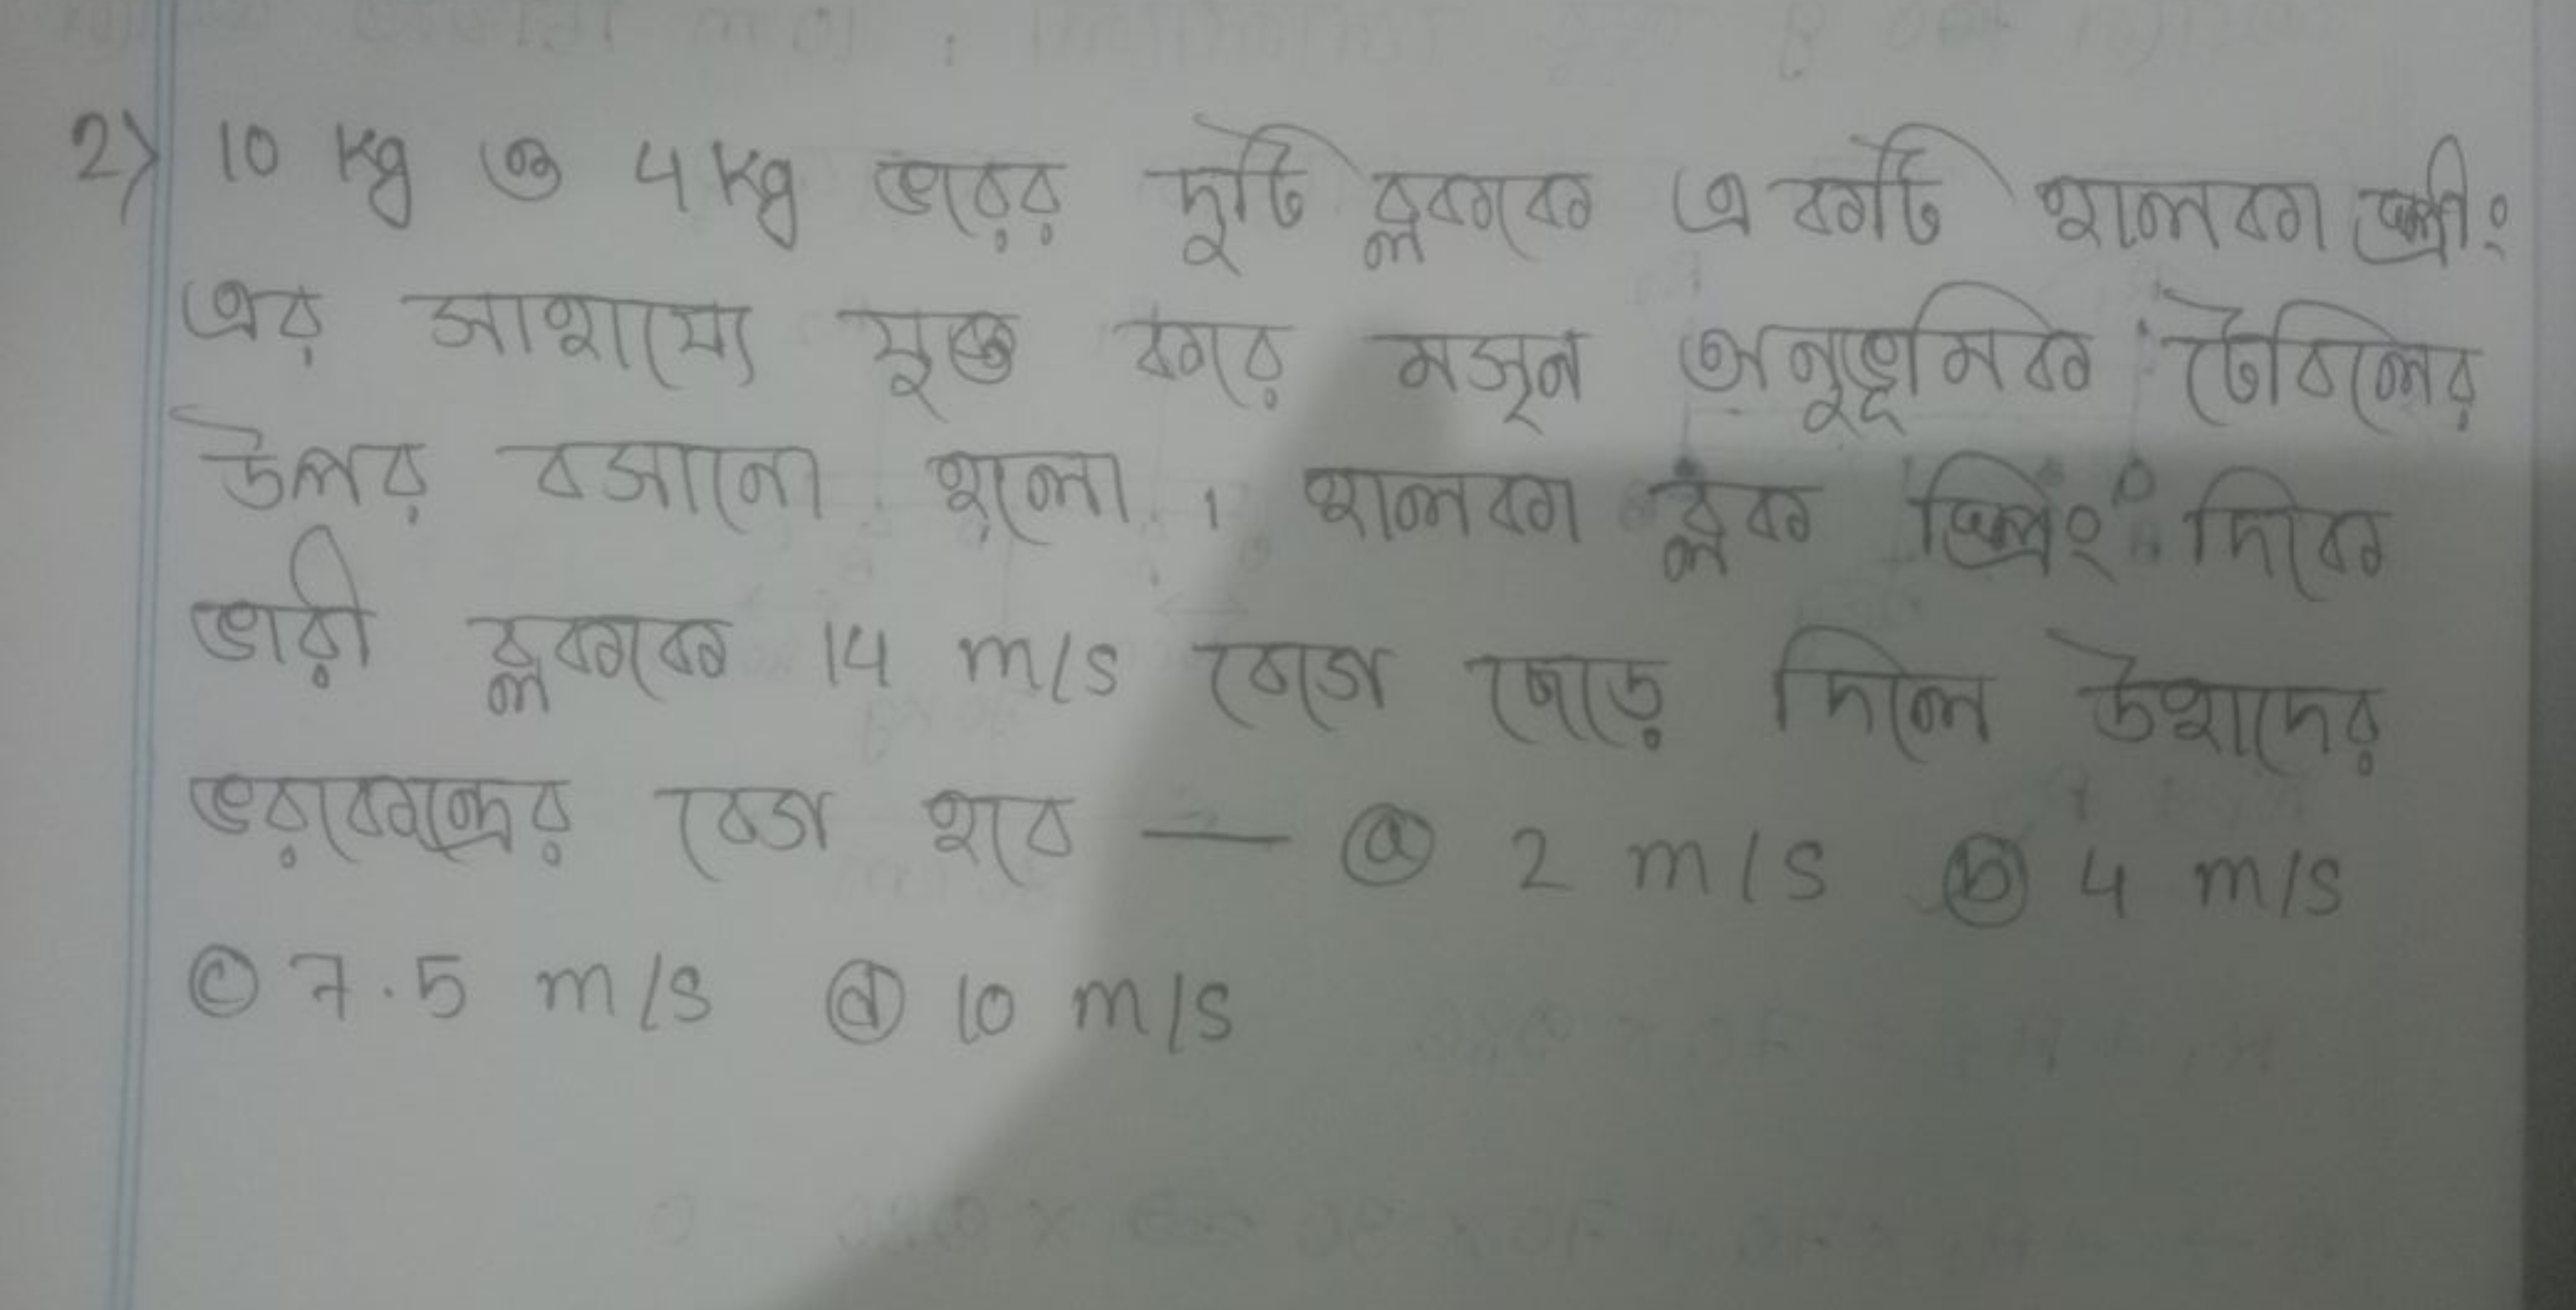 2) 10 kg ও 4 kg ভরের দুটি ব্লককে একটি হালকা স্প্রীং
এর সাহায্যে যুক্ত করে মসৃন অনুভূমিক টেবিলের
উপর বসানো হলো । হালকা ব্লক স্প্রিং দিকে
ভারী ব্লককে 14 m/s বেগে ছেড়ে দিলে উহাদের
ভরকেন্দ্রের বেগ হবে — ⓐ 2 m/s ⓑ 4 m/s
ⓒ 7.5 m/s ⓓ 10 m/s